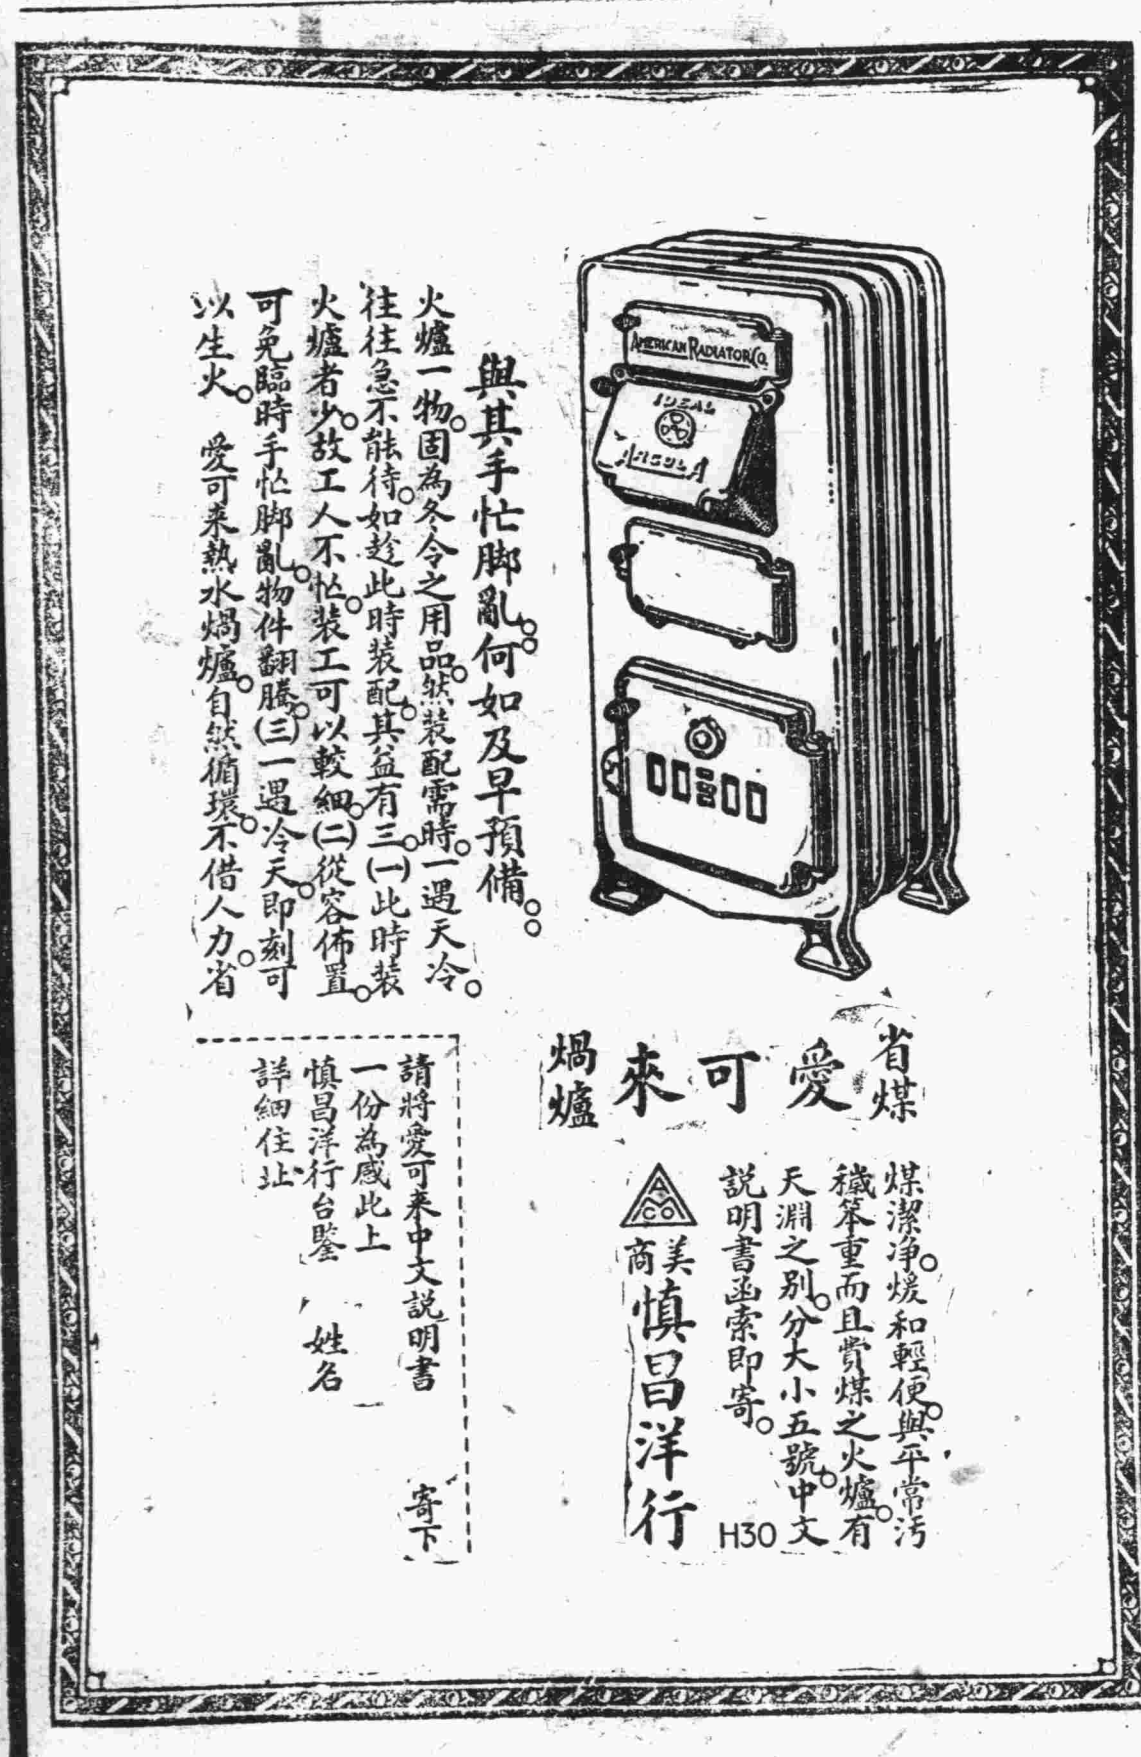 AMERICAN RADIATOR CO.
IDEAL
ARCOLA
與其手忙脚亂。何如及早預備。。
火爐一物。固為冬令之用品。然装配需時。一遇天冷。
往往急不能待。如趁此時装配。其益有三。(一)此時装
火爐者少。故工人不忙。装工可以較細。(二)從容佈置。
可免臨時手忙脚亂。物件翻騰。(三)一遇冷天。即刻可
以生火。 愛可来熱水焗爐。自然循環。不借人力。省
煤潔净。煖和輕便。與平常汚
穢笨重而且費煤之火爐。有
天淵之别。分大小五號。中文
説明書函索即寄。
H30
省煤
愛可來
焗爐
A
CO
美商
慎昌洋行
請將愛可来中文説明書 寄下
一份為感此上
慎昌洋行台鑒 姓名
詳細住址